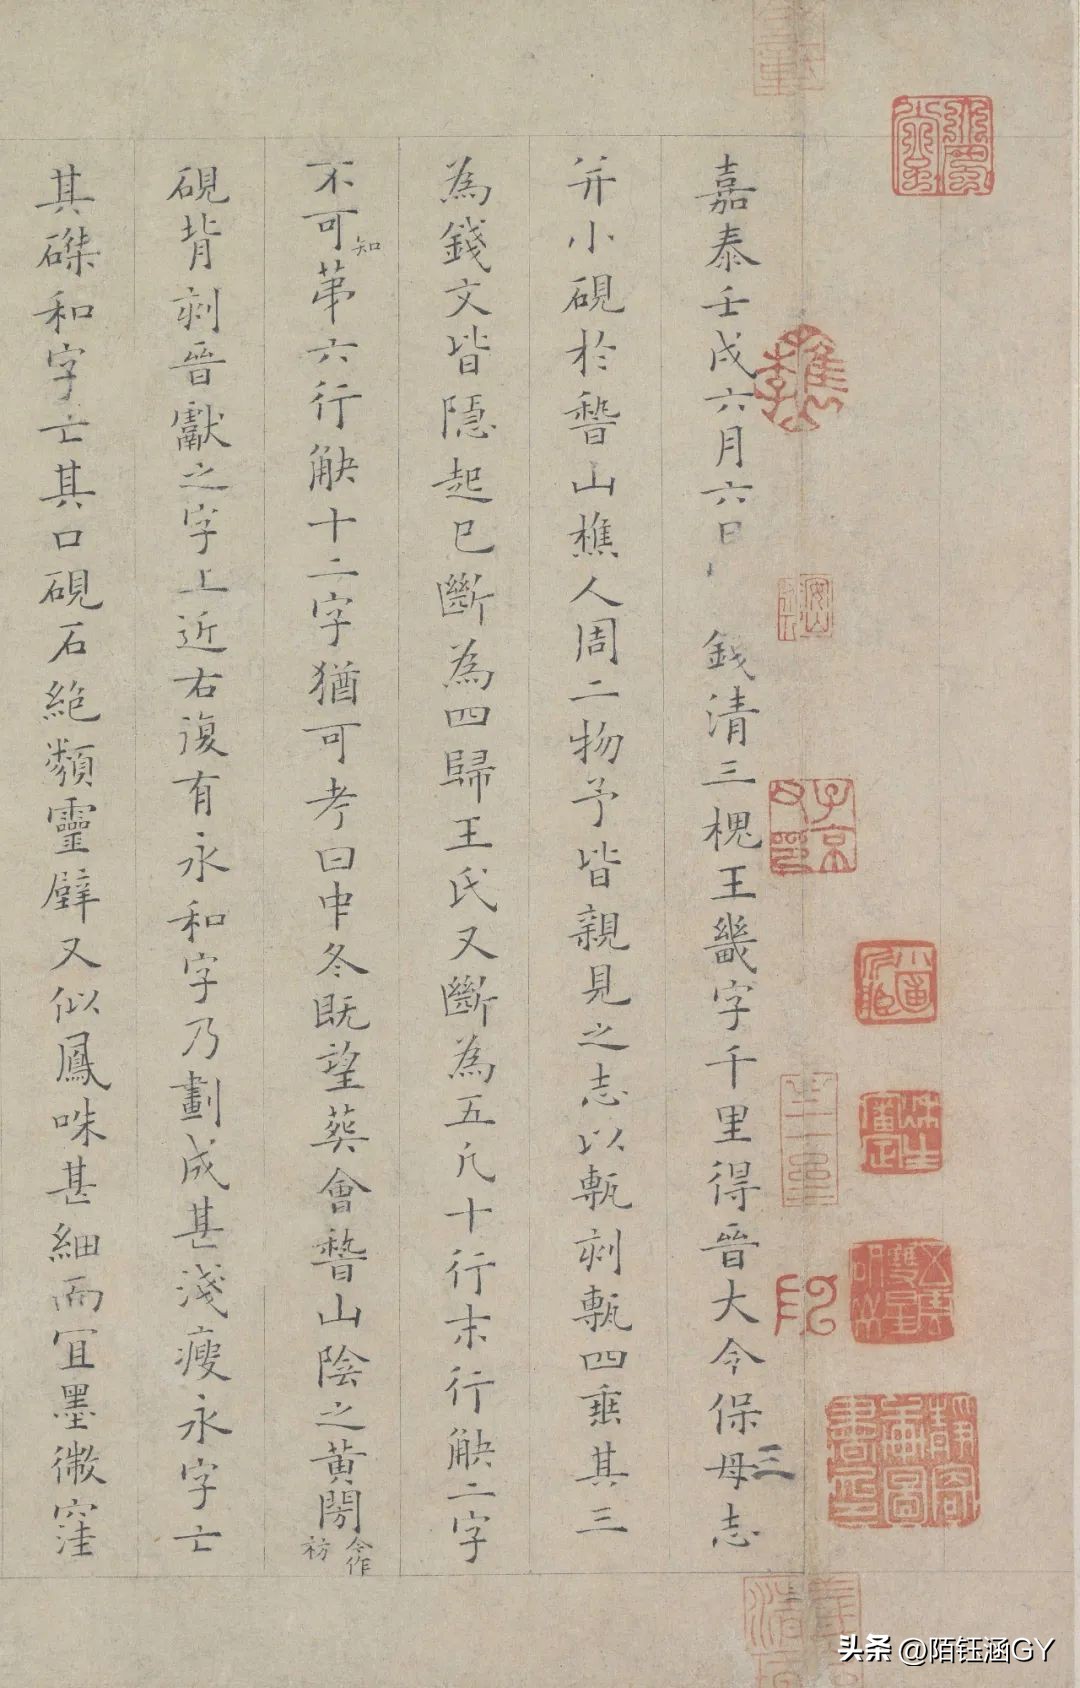 嘉泰壬戌六月六日錢清三槐王畿字千里得晉大令保母志
三
并小硯於稽山樵人周二物予皆親見之志以甎刻甎四垂其三
為錢文皆隱起已斷為四歸王氏又斷為五凡十行末行缺二字
不可知第六行缺十二字猶可考曰中冬既望葬會稽山陰之黃閍今作祊
硯背刻晉獻之字上近右復有永和字乃劃成甚淺瘦永字亡
其磔和字亡其口硯石絕類靈壁又似鳳咮甚細而宜墨微窪
子京父印
頭条 @陌钰涵GY